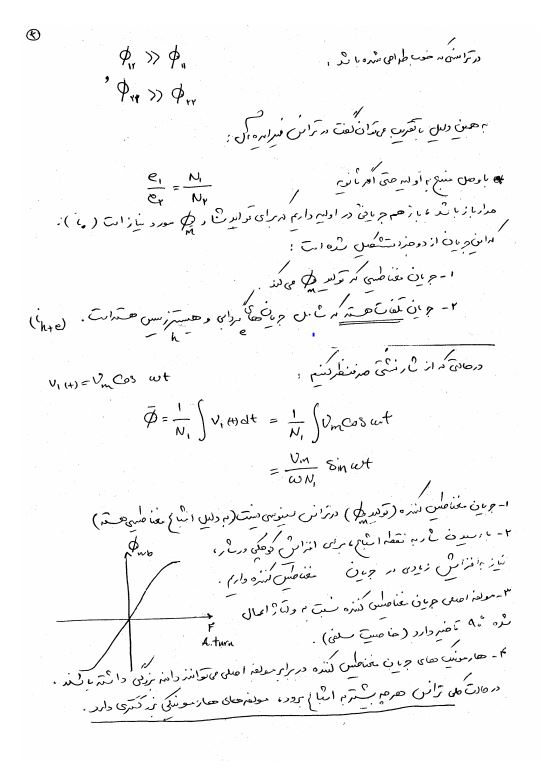 ۴
در ترانسی که خوب طراحی شده باشد ,
φ₁₂ >> φ₁₁
, φ₂₁ >> φ₂₂
به همین دلیل با تقریب می‌توان گفت در ترانس غیر ایده‌آل :
e₁/e₂ = N₁/N₂
با وصل منبع به اولیه حتی اگر ثانویه
مدار باز باشد ، باز هم جریانی در اولیه داریم که برای تولید شار φm مورد نیاز است (i₀) :
که این جریان از دو جزء تشکیل شده است :
۱- جریان مغناطیسی که تولید φm می‌کند .
۲- جریان تلفات هسته که شامل جریان‌های گردابی e و هیسترزیس h هسته است . (i h+e)
در حالتی که از شار نشتی صرفنظر کنیم :
v₁(t) = Vm Cos ωt
φ̄ = 1/N₁ ∫ v₁(t) dt = 1/N₁ ∫ Vm Cos ωt
= Vm/ωN₁ Sin ωt
۱- جریان مغناطیس کننده (تولید φm) در ترانس سینوسی نیست (به دلیل اشباع مغناطیسی هسته)
۲- با رسیدن شار به نقطه اشباع ، برای افزایش کوچکی در شار ،
نیاز به افزایش زیادی در جریان مغناطیس کننده داریم .
φ wb
F
A.turn
۳- مولفه اصلی جریان مغناطیس کننده نسبت به ولتاژ اعمال
شده ۹۰° تاخیر دارد (خاصیت سلفی) .
۴- هارمونیک های جریان مغناطیس کننده در برابر مولفه اصلی می‌توانند دامنه بزرگی داشته باشند .
در حالت کلی ترانس هر چه بیشتر به اشباع برود ، مولفه‌های هارمونیکی بزرگتری دارد .